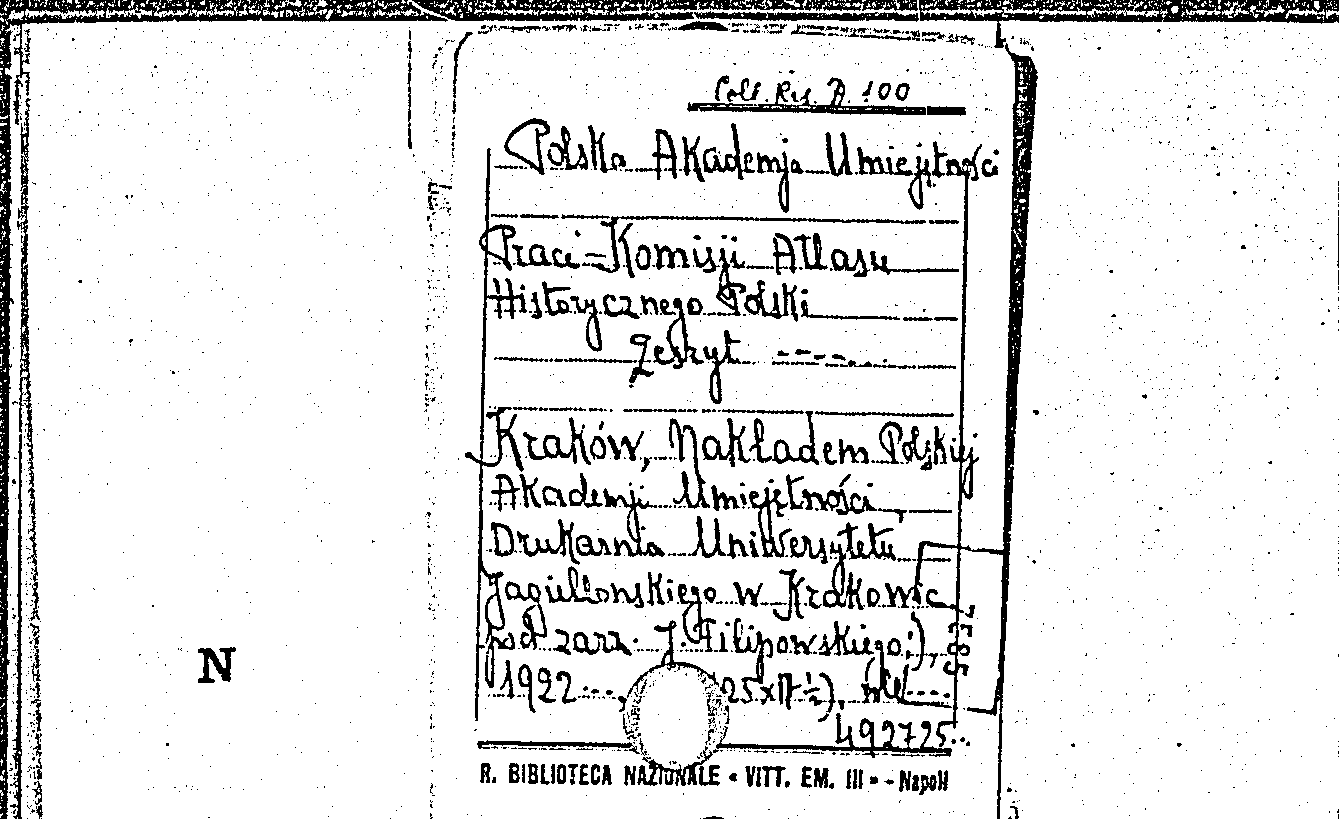 Coll. Ris. A. 100
Polska Akademja Umiejętności
Praci-Komisji Atlasu
Historycznego Polski
Zeszyt -------
Kraków, Nakładem Polskiej
Akademji Umiejętności,
Drukarnia Uniwersytetu
Jagiellonskiego w Krakowie
pod zarz. J. Filipowskiego;),
1922 ..., 25x17 ½),
492725..
N
R. BIBLIOTECA NAZIONALE « VITT. EM. III » - Napoli